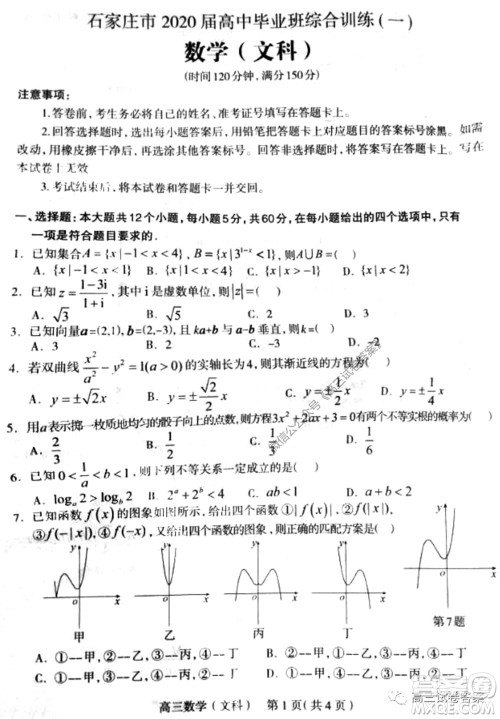 石家庄市 2020 届高中毕业班综合训练(一)
数学(文科)
(时间120分钟，满分150分)
注意事项：
1.答卷前，考生务必将自己的姓名、准考证号填写在答题卡上。
2.回答选择题时，选出每小题答案后，用铅笔把答题卡上对应题目的答案标号涂黑。如需
改动，用橡皮擦干净后，再选涂其他答案标号。回答非选择题时，将答案写在答题卡上。写在
本试卷上无效
3.考试结束后，将本试卷和答题卡一并交回。
一、选择题：本大题共12个小题，每小题5分，共60分，在每小题给出的四个选项中，只有
一项是符合题目要求的.
1. 已知集合A={x|-1<x<4}，B={x|3^{1-x}<1},则A∪B=( )
A. {x|-1<x<1} B. {x|1<x<4} C. {x|x>-1} D. {x|x<2}
2. 已知z=\frac{1-3i}{1+i}，其中i是虚数单位，则|z|=( )
A. √3 B. 2 C. √5 D. 3
3. 已知向量a=(2,1)，b=(2,-3)，且ka+b与a-b垂直，则k=( )
A. 3 B. -2 C. 2 D. -3
4. 若双曲线\frac{x²}{a²}-y²=1(a>0)的实轴长为4，则其渐近线的方程为( )
A. y=±√2x B. y=±\frac{√2}{2}x C. y=±\frac{1}{2}x D. y=±\frac{1}{4}x
5. 用a表示掷一枚质地均匀的骰子向上的点数，则方程3x²+2ax+3=0有两个不等实根的概率为( )
A. \frac{2}{3} B. \frac{1}{2} C. \frac{1}{3} D. \frac{1}{6}
6. 已知0<\frac{1}{a}<b<1，则下列不等关系一定成立的是( )
A. log_a 2>log_b 2 B. 2^a+2^b<4 C. ab<1 D. a+b>2
7. 已知函数f(x)的图象如图所示，给出四个函数：①|f(x)|，②f(|x|)，
③f(-|x|)，④f(-x)，又给出四个函数的图象，则正确的匹配方案是( )
y x y x y x y x y x
甲 乙 丙 丁 第7题
A. ①--甲，②--乙，③--丙，④--丁 B. ②--甲，①--乙，③--丙，④--丁
C. ①--甲，③--乙，④--丙，②--丁 D. ①--甲，④--乙，③--丙，②--丁
高三数学(文科) 第1页(共4页)
高三试卷答案